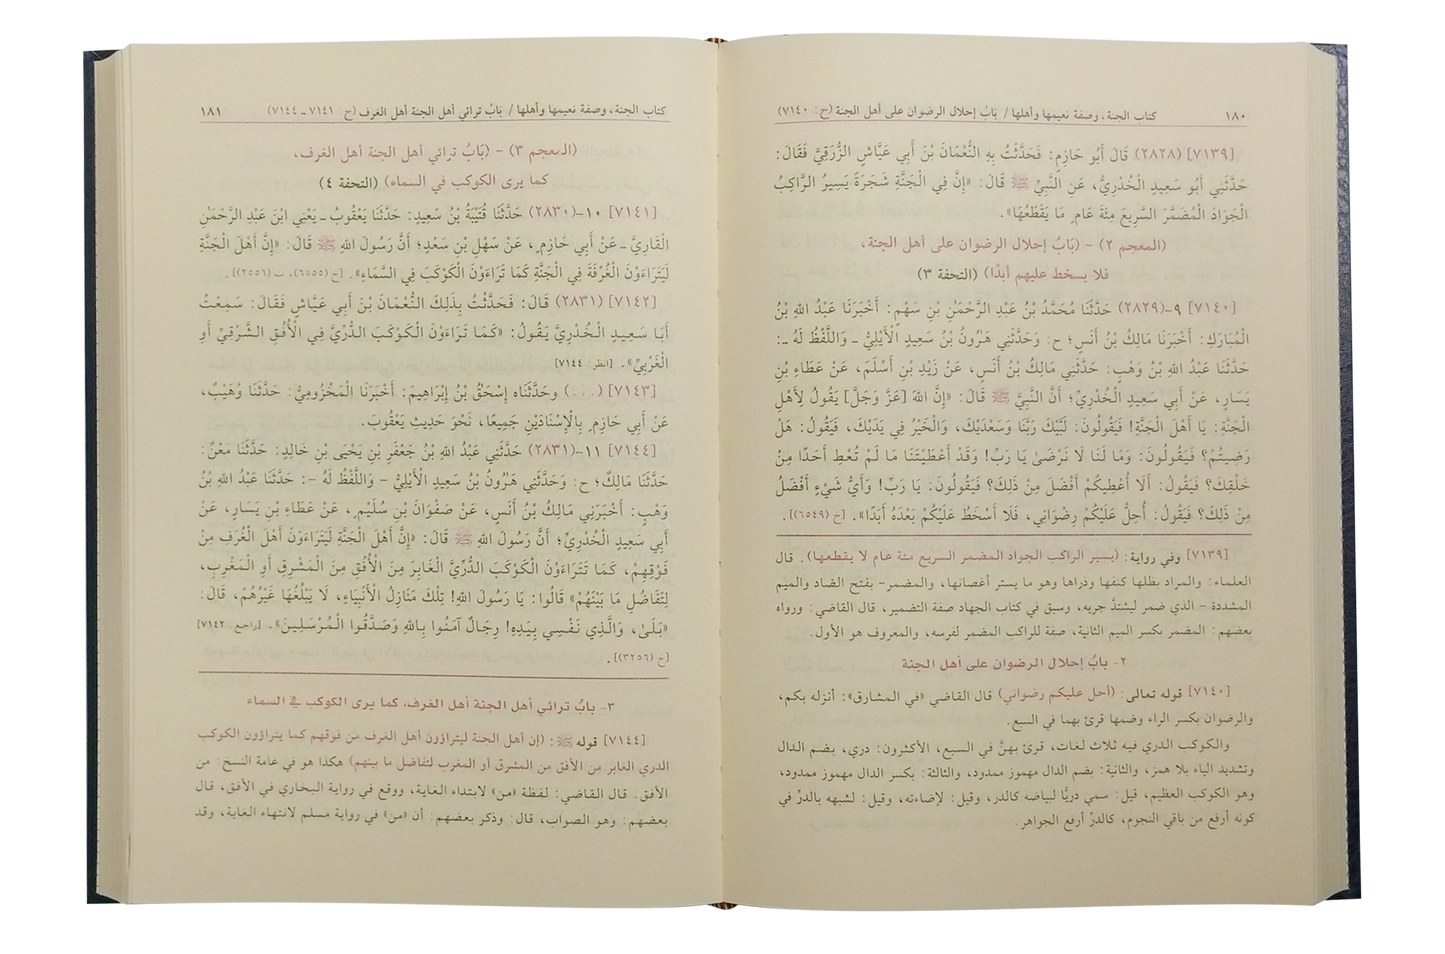 ١٨٠ كتاب الجنة، وصفة نعيمها وأهلها / بَابُ إحلال الرضوان على أهل الجنة (ح: ٧١٤٠)
[٧١٣٩] (٢٨٢٨) قَالَ أَبُو حَازِمٍ: فَحَدَّثْتُ بِهِ النُّعْمَانَ بْنَ أَبِي عَيَّاشٍ الزُّرَقِيَّ فَقَالَ:
حَدَّثَنِي أَبُو سَعِيدٍ الْخُدْرِيُّ، عَنِ النَّبِيِّ ﷺ قَالَ: «إِنَّ فِي الْجَنَّةِ شَجَرَةً يَسِيرُ الرَّاكِبُ
الْجَوَادَ الْمُضَمَّرَ السَّرِيعَ مِئَةَ عَامٍ، مَا يَقْطَعُهَا».
(المعجم ٢) - (بَابُ إحلال الرضوان على أهل الجنة،
فلا يسخط عليهم أبدًا) (التحفة ٣)
[٧١٤٠] ٩-(٢٨٢٩) حَدَّثَنَا مُحَمَّدُ بْنُ عَبْدِ الرَّحْمَنِ بْنِ سَهْمٍ: أَخْبَرَنَا عَبْدُ اللهِ بْنُ
الْمُبَارَكِ: أَخْبَرَنَا مَالِكُ بْنُ أَنَسٍ؛ ح: وَحَدَّثَنِي هَرُونُ بْنُ سَعِيدٍ الْأَيْلِيُّ ـ وَاللَّفْظُ لَهُ ـ:
حَدَّثَنَا عَبْدُ اللهِ بْنُ وَهْبٍ: حَدَّثَنِي مَالِكُ بْنُ أَنَسٍ، عَنْ زَيْدِ بْنِ أَسْلَمَ، عَنْ عَطَاءِ بْنِ
يَسَارٍ، عَنْ أَبِي سَعِيدٍ الْخُدْرِيِّ؛ أَنَّ النَّبِيَّ ﷺ قَالَ: «إِنَّ اللهَ [عَزَّ وَجَلَّ] يَقُولُ لِأَهْلِ
الْجَنَّةِ: يَا أَهْلَ الْجَنَّةِ! فَيَقُولُونَ: لَبَّيْكَ رَبَّنَا وَسَعْدَيْكَ، وَالْخَيْرُ فِي يَدَيْكَ، فَيَقُولُ: هَلْ
رَضِيتُمْ؟ فَيَقُولُونَ: وَمَا لَنَا لَا نَرْضَى يَا رَبِّ! وَقَدْ أَعْطَيْتَنَا مَا لَمْ تُعْطِ أَحَدًا مِنْ
خَلْقِكَ؟ فَيَقُولُ: أَلَا أُعْطِيكُمْ أَفْضَلَ مِنْ ذَلِكَ؟ فَيَقُولُونَ: يَا رَبِّ! وَأَيُّ شَيْءٍ أَفْضَلُ
مِنْ ذَلِكَ؟ فَيَقُولُ: أُحِلُّ عَلَيْكُمْ رِضْوَانِي، فَلَا أَسْخَطُ عَلَيْكُمْ بَعْدَهُ أَبَدًا». [خ (٦٥٤٩)].
[٧١٣٩] وفي رواية: (يسير الراكب الجواد المضمر السريع مئة عام لا يقطعها). قال
العلماء: والمراد بظلها كنفها وذراها وهو ما يستر أغصانها، والمضمر- بفتح الضاد والميم
المشددة - الذي ضمر ليشتدَّ جريه، وسبق في كتاب الجهاد صفة التضمير، قال القاضي: ورواه
بعضهم: المضمر بكسر الميم الثانية، صفة للراكب المضمر لفرسه، والمعروف هو الأول.
٢- بابُ إحلال الرضوان على أهل الجنة
[٧١٤٠] قوله تعالى: (أحل عليكم رضواني) قال القاضي «في المشارق»: أنزله بكم،
والرضوان بكسر الراء وضمها قرئ بهما في السبع.
والكوكب الدري فيه ثلاث لغات، قرئ بهنَّ في السبع، الأكثرون: دري، بضم الدال
وتشديد الياء بلا همز، والثانية: بضم الدال مهموز ممدود، والثالثة: بكسر الدال مهموز ممدود،
وهو الكوكب العظيم، قيل: سمي دريًّا لبياضه كالدر، وقيل: لإضاءته، وقيل: لشبهه بالدرِّ في
كونه أرفع من باقي النجوم، كالدرِّ أرفع الجواهر.
كتاب الجنة، وصفة نعيمها وأهلها / بَابُ ترائي أهل الجنة أهل الغرف (ح: ٧١٤١ ـ ٧١٤٤) ١٨١
(المعجم ٣) - (بَابُ ترائي أهل الجنة أهل الغرف،
كما يرى الكوكب في السماء) (التحفة ٤)
[٧١٤١] ١٠-(٢٨٣٠) حَدَّثَنَا قُتَيْبَةُ بْنُ سَعِيدٍ: حَدَّثَنَا يَعْقُوبُ ـ يَعْنِي ابْنَ عَبْدِ الرَّحْمَنِ
الْقَارِيَّ ـ عَنْ أَبِي حَازِمٍ، عَنْ سَهْلِ بْنِ سَعْدٍ؛ أَنَّ رَسُولَ اللهِ ﷺ قَالَ: «إِنَّ أَهْلَ الْجَنَّةِ
لَيَتَرَاءَوْنَ الْغُرْفَةَ فِي الْجَنَّةِ كَمَا تَرَاءَوْنَ الْكَوْكَبَ فِي السَّمَاءِ». [خ (٦٥٥٥)، ت (٢٥٥٦)].
[٧١٤٢] (٢٨٣١) قَالَ: فَحَدَّثْتُ بِذَلِكَ النُّعْمَانَ بْنَ أَبِي عَيَّاشٍ فَقَالَ: سَمِعْتُ
أَبَا سَعِيدٍ الْخُدْرِيَّ يَقُولُ: «كَمَا تَرَاءَوْنَ الْكَوْكَبَ الدُّرِّيَّ فِي الْأُفُقِ الشَّرْقِيِّ أَوِ
الْغَرْبِيِّ». [انظر: ٧١٤٤]
[٧١٤٣] (...) وحَدَّثَنَاه إِسْحَقُ بْنُ إِبْرَاهِيمَ: أَخْبَرَنَا الْمَخْزُومِيُّ: حَدَّثَنَا وُهَيْبٌ،
عَنْ أَبِي حَازِمٍ بِالْإِسْنَادَيْنِ جَمِيعًا، نَحْوَ حَدِيثِ يَعْقُوبَ.
[٧١٤٤] ١١-(٢٨٣١) حَدَّثَنِي عَبْدُ اللهِ بْنُ جَعْفَرِ بْنِ يَحْيَى بْنِ خَالِدٍ: حَدَّثَنَا مَعْنٌ:
حَدَّثَنَا مَالِكٌ؛ ح: وَحَدَّثَنِي هَرُونُ بْنُ سَعِيدٍ الْأَيْلِيُّ - وَاللَّفْظُ لَهُ -: حَدَّثَنَا عَبْدُ اللهِ بْنُ
وَهْبٍ: أَخْبَرَنِي مَالِكُ بْنُ أَنَسٍ، عَنْ صَفْوَانَ بْنِ سُلَيْمٍ، عَنْ عَطَاءِ بْنِ يَسَارٍ، عَنْ
أَبِي سَعِيدٍ الْخُدْرِيِّ؛ أَنَّ رَسُولَ اللهِ ﷺ قَالَ: «إِنَّ أَهْلَ الْجَنَّةِ لَيَتَرَاءَوْنَ أَهْلَ الْغُرَفِ مِنْ
فَوْقِهِمْ، كَمَا تَتَرَاءَوْنَ الْكَوْكَبَ الدُّرِّيَّ الْغَابِرَ مِنَ الْأُفُقِ مِنَ الْمَشْرِقِ أَوِ الْمَغْرِبِ،
لِتَفَاضُلِ مَا بَيْنَهُمْ» قَالُوا: يَا رَسُولَ اللهِ! تِلْكَ مَنَازِلُ الْأَنْبِيَاءِ، لَا يَبْلُغُهَا غَيْرُهُمْ، قَالَ:
«بَلَى، وَالَّذِي نَفْسِي بِيَدِهِ! رِجَالٌ آمَنُوا بِاللهِ وَصَدَّقُوا الْمُرْسَلِينَ». [راجع: ٧١٤٢]
[خ (٣٢٥٦)].
٣- بابُ ترائي أهل الجنة أهل الغرف، كما يرى الكوكب في السماء
[٧١٤٤] قوله ﷺ: (إن أهل الجنة ليتراؤون أهل الغرف من فوقهم كما يتراؤون الكوكب
الدري الغابر من الأفق من المشرق أو المغرب لتفاضل ما بينهم) هكذا هو في عامة النسخ: من
الأفق. قال القاضي: لفظة «من» لابتداء الغاية، ووقع في رواية البخاري في الأفق، قال
بعضهم: وهو الصواب، قال: وذكر بعضهم: أن «من» في رواية مسلم لانتهاء الغاية، وقد